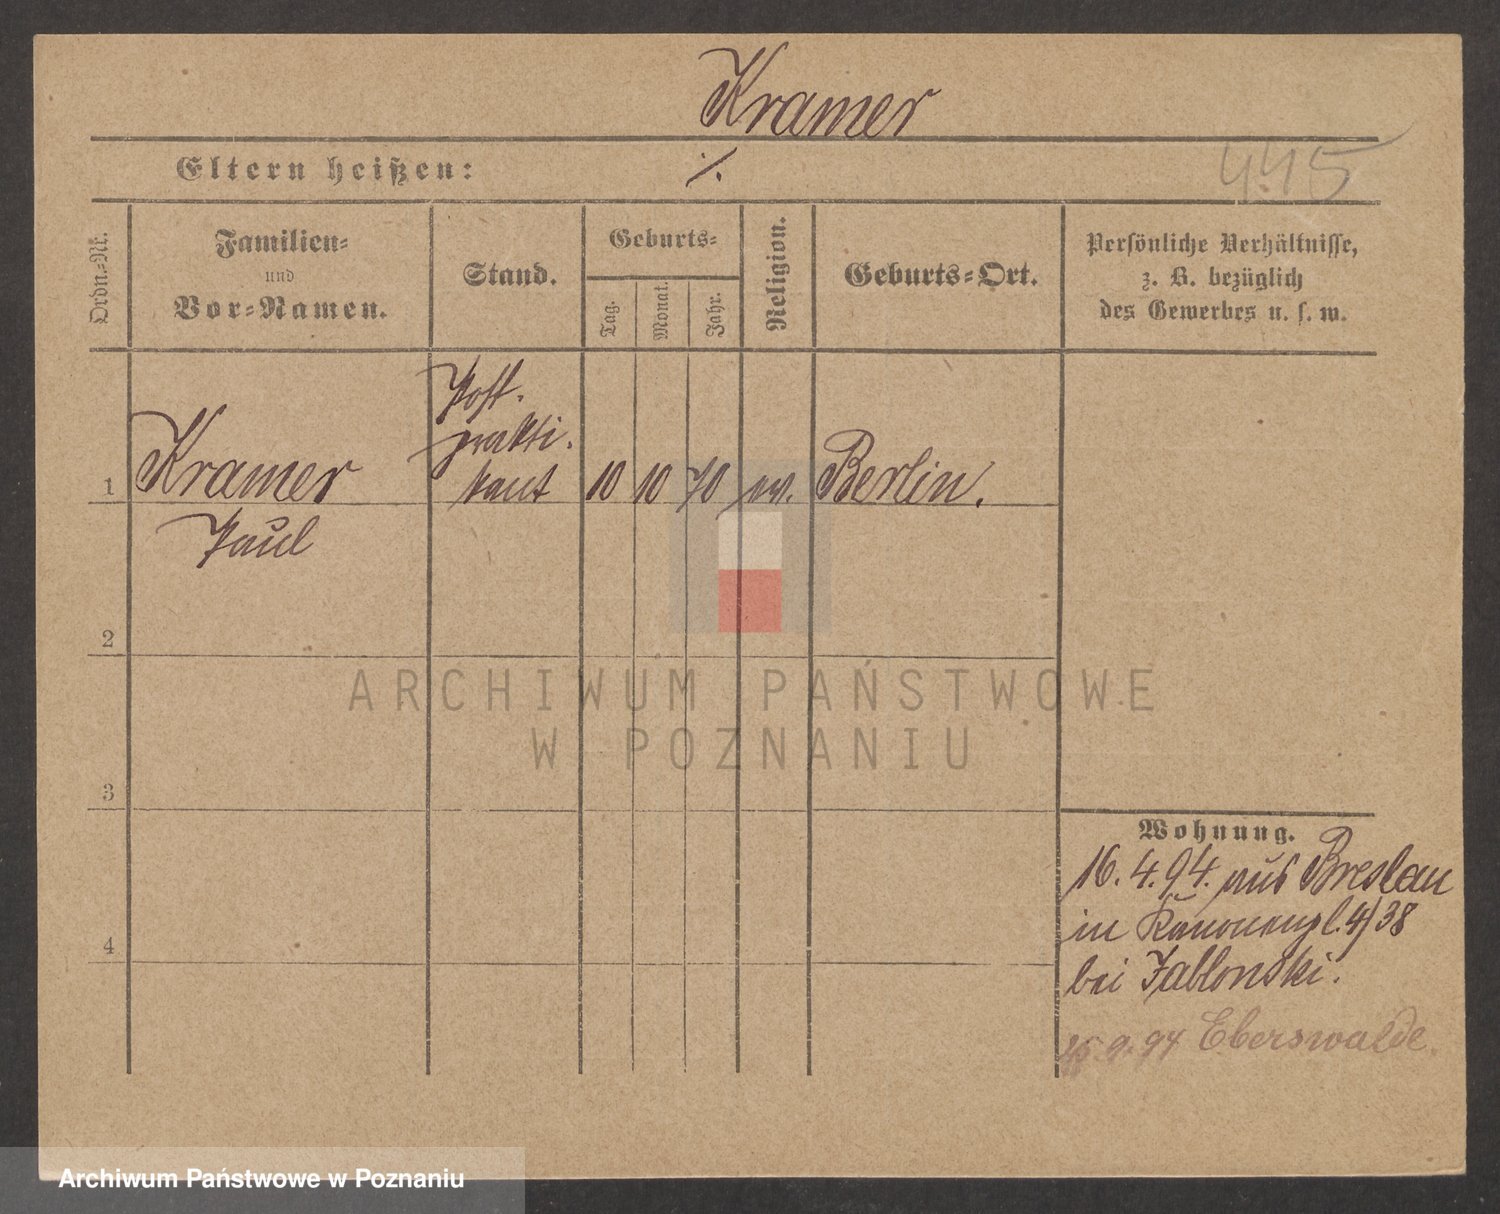 Kramer
Eltern heißen: ./.
445
Ordn.=Nr.
Familien=
und
Vor=Namen.
Stand.
Geburts=
Tag.
Monat.
Jahr.
Religion.
Geburts=Ort.
Persönliche Verhältnisse,
z. B. bezüglich
des Gewerbes u. s. w.
Post-
prakti-
1 Kramer kant 10 10 70 ev. Berlin.
Paul
2
3
4
Wohnung.
16.4.94. aus Breslau
in Kanonenpl. 4/38
bei Jablonski.
9. 94 Eberswalde.
ARCHIWUM PAŃSTWOWE
W POZNANIU
Archiwum Państwowe w Poznaniu